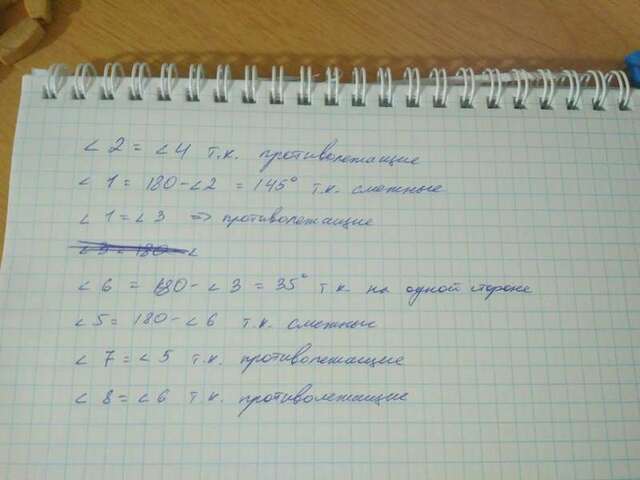 ∠ 2 = ∠4 т.к. противолежащие
∠ 1 = 180-∠2 = 145° т.к. смежные
∠ 1 = ∠ 3 => противолежащие
∠ 3 = 180 - ∠
∠ 6 = 180 - ∠ 3 = 35° т.к. на одной стороне
∠ 5 = 180 - ∠ 6 т.к. смежные
∠ 7 = ∠ 5 т.к. противолежащие
∠ 8 = ∠ 6 т.к. противолежащие